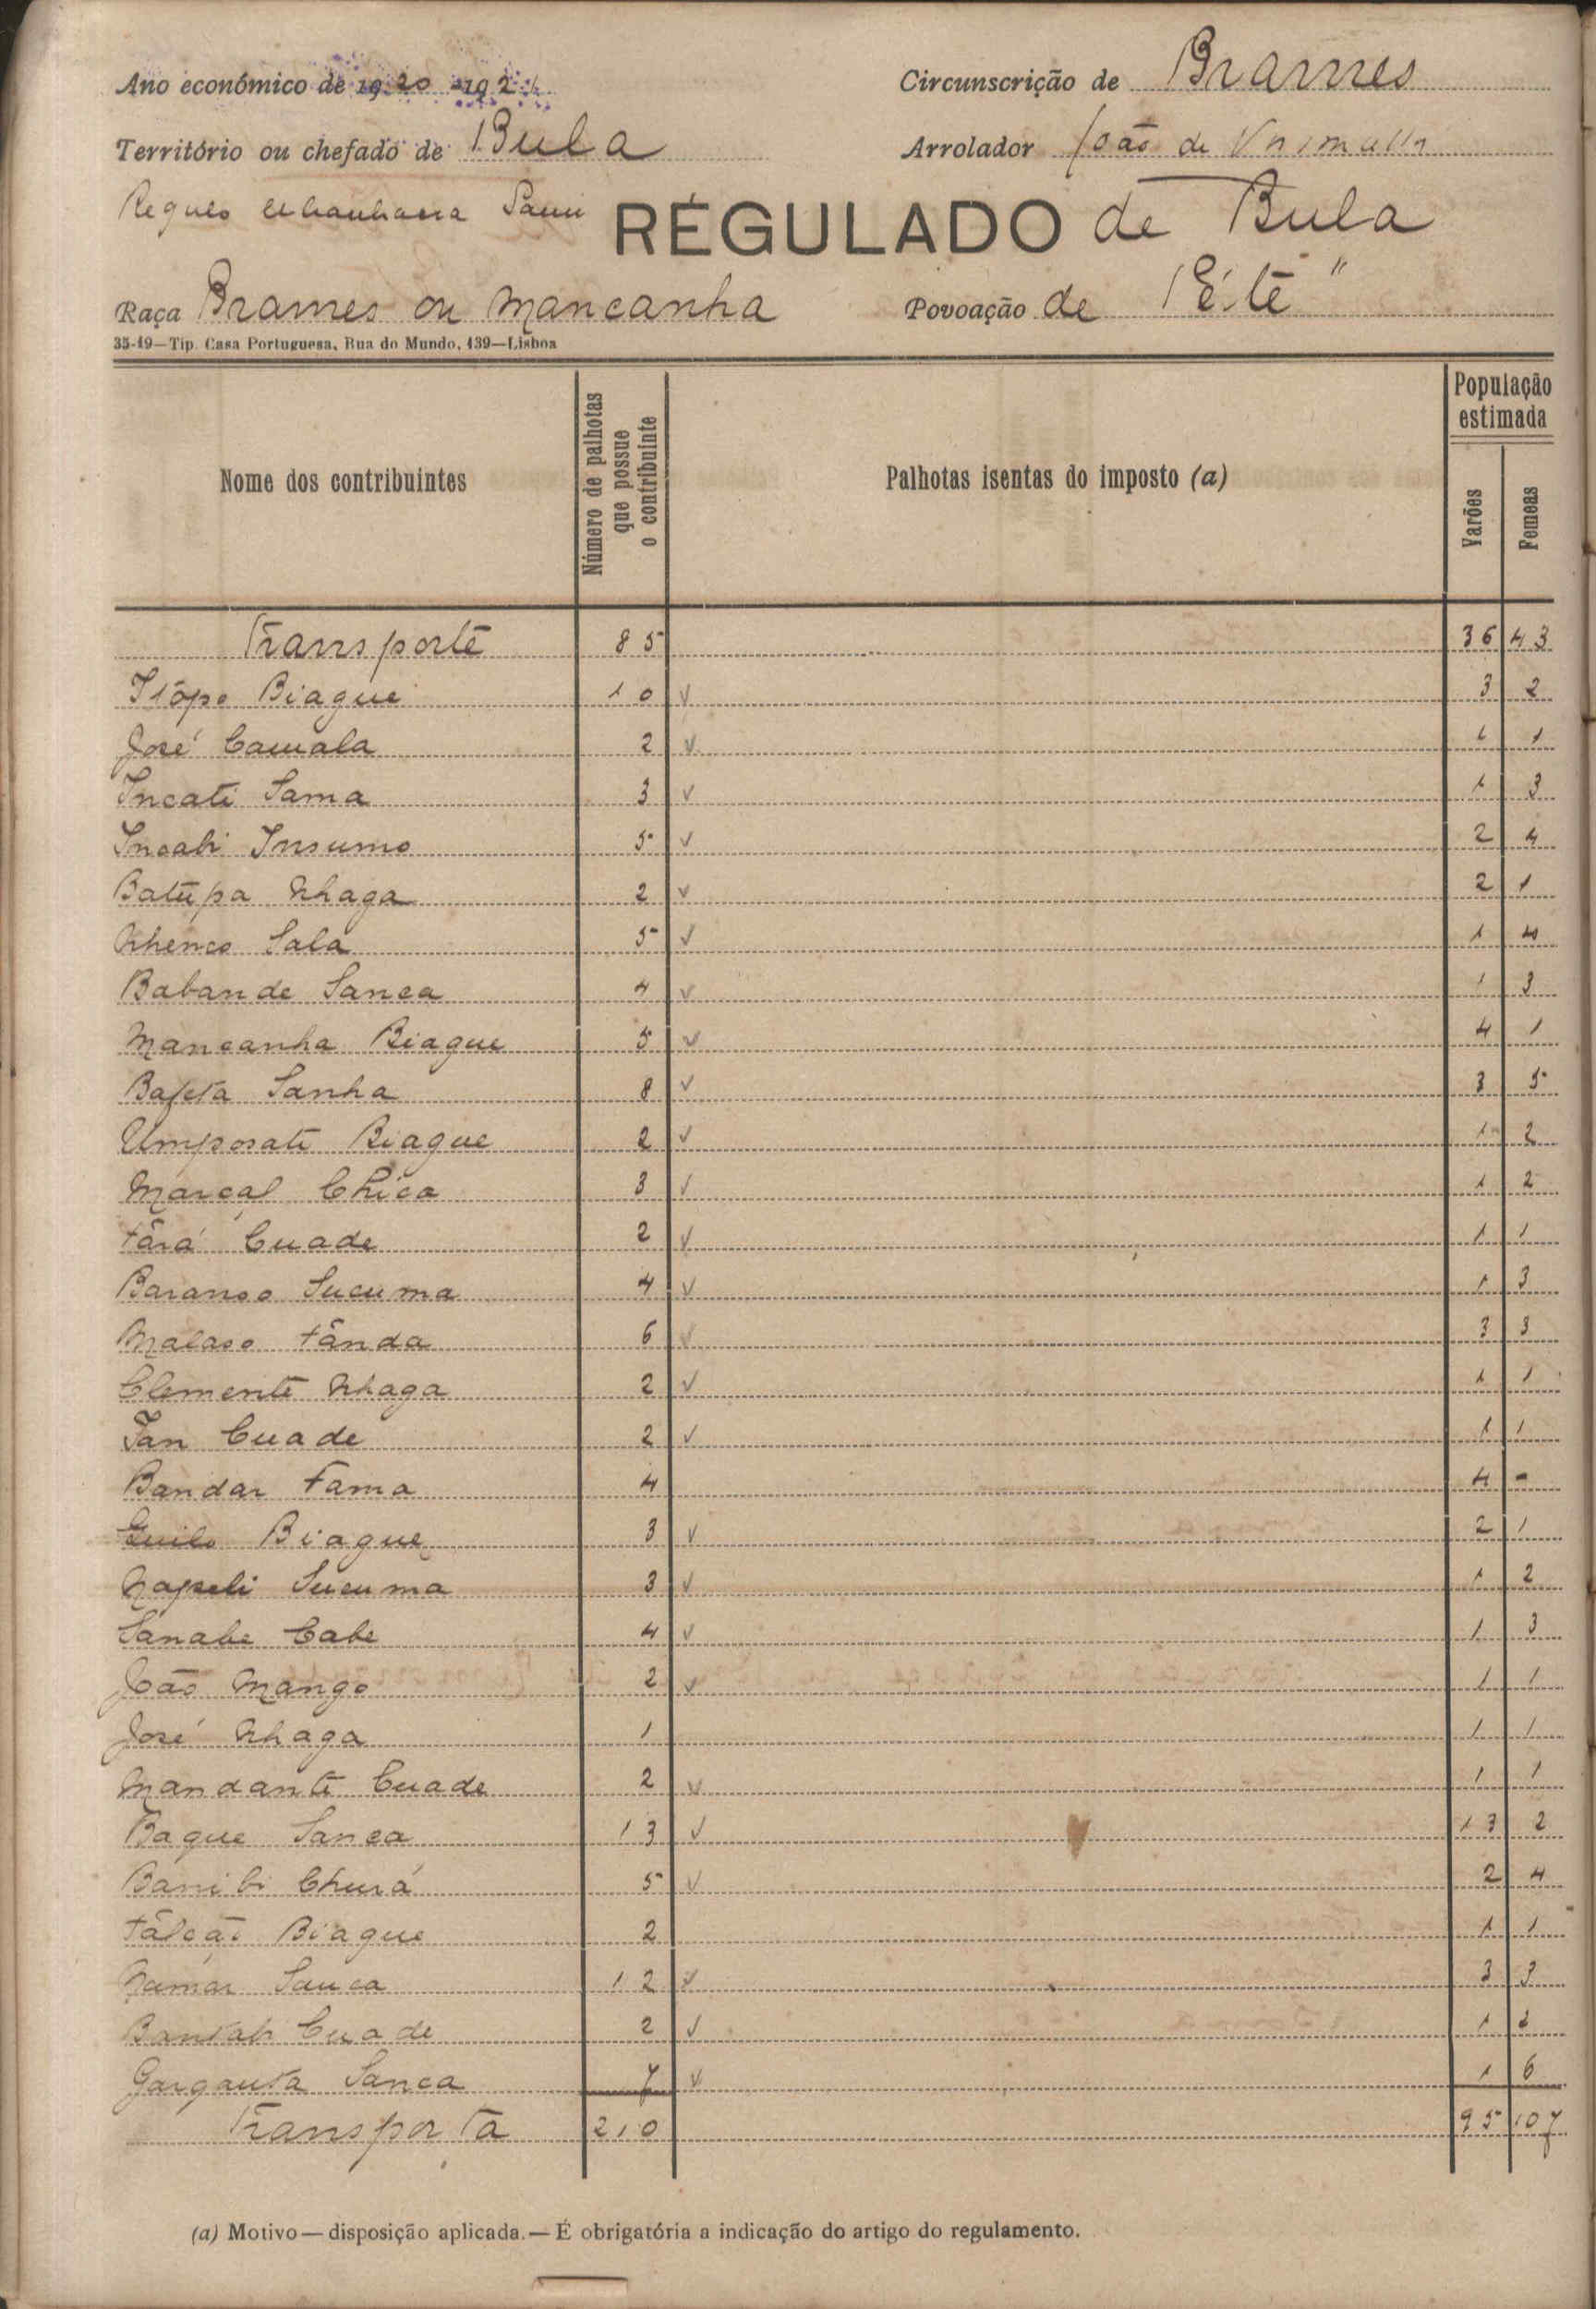 Ano económico de 1920-192
Circunscrição de Brames
Território ou chefado de Bula
Arrolador João de
Regulo
REGULADO de Bula
Raça Brames ou Mancanha
Povoação de
35-19—Tip. Casa Portuguesa, Rua do Mundo, 139—Lisboa
Nome dos contribuintes
Número de palhotas que possue o contribuinte
Palhotas isentas do imposto (a)
População estimada
Varões
Femeas
Transporte 85 36 43
Biague 10 v 3 2
José Camala 2 v 1 1
Incati Sama 3 v 1 3
Incabi Insumo 5 v 2 4
Batúpa Nhaga 2 v 2 1
Nhenco Sala 5 v 1 4
Babande Sanca 4 v 1 3
Mancanha Biague 5 v 4 1
Bafeta Sanha 8 v 3 5
Umposate Biague 2 v 1 2
Marcal Chica 3 v 1 2
Tará Cuade 2 v 1 1
Baranso Sucuma 4 v 1 3
Malaso Tânda 6 v 3 3
Clemente Nhaga 2 v 1 1
Jan Cuade 2 v 1 1
Bandar Fama 4 4 -
Quilo Biague 3 v 2 1
Napeli Sucuma 3 v 1 2
Sanabe Cabe 4 v 1 3
João Mango 2 v 1 1
José Nhaga 1 1 1
Mandante Cuade 2 v 1 1
Bague Sanca 13 v 13 2
Banibi Churá 5 v 2 4
Biague 2 1 1
Namar Sanca 12 v 3 3
Cuade 2 v 1 2
Garganta Sanca 7 v 1 6
Transporta 210 95 107
(a) Motivo—disposição aplicada.—É obrigatória a indicação do artigo do regulamento.